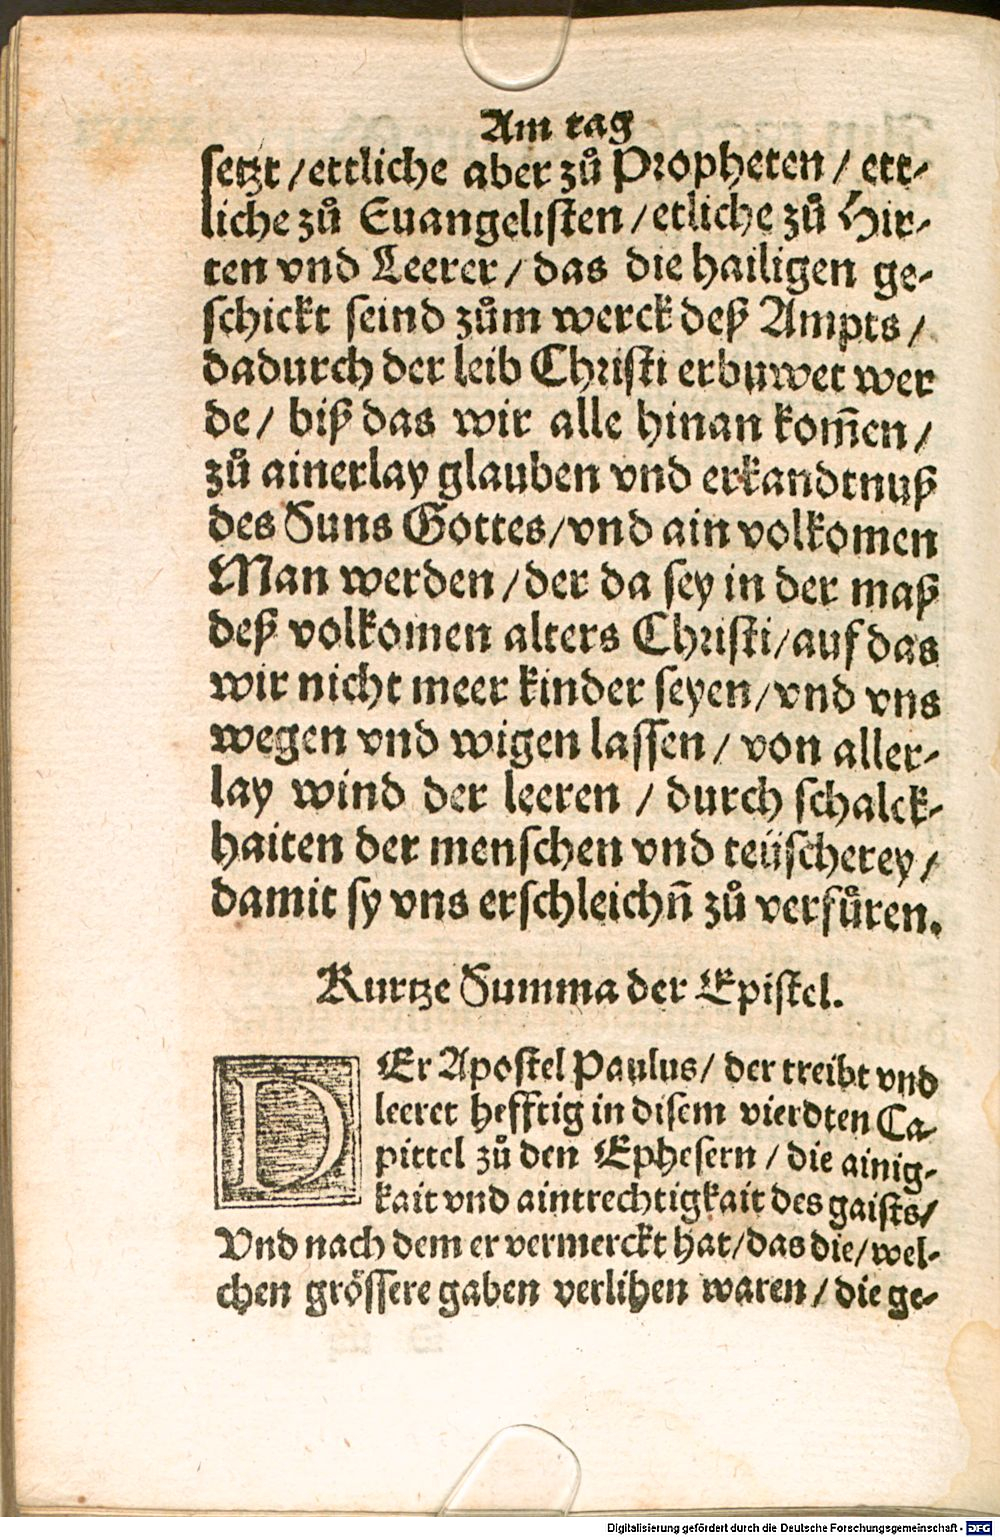 Am tag
setzt / ettliche aber zuͦ Propheten / ett-
liche zuͦ Euangelisten / etliche zuͦ Hir-
ten vnd Leerer / das die hailigen ge-
schickt seind zuͦm werck deß Ampts /
dadurch der leib Christi erbuwet wer
de / biß das wir alle hinan kom̃en /
zuͦ ainerlay glauben vnd erkandtnuß
des Suns Gottes / vnd ain volkomen
Man werden / der da sey in der maß
deß volkomen alters Christi / auf das
wir nicht meer kinder seyen / vnd vns
wegen vnd wigen lassen / von aller-
lay wind der leeren / durch schalck-
haiten der menschen vnd teüscherey /
damit sy vns erschleichñ zuͦ verfuͤren.
Kurtze Summa der Epistel.
DEr Apostel Paulus / der treibt vnd
leeret hefftig in disem vierdten Ca-
pittel zuͦ den Ephesern / die ainig-
kait vnd aintrechtigkait des gaists /
Vnd nach dem er vermerckt hat / das die / wel-
chen grössere gaben verlihen waren / die ge-
Digitalisierung gefördert durch die Deutsche Forschungsgemeinschaft - DFG